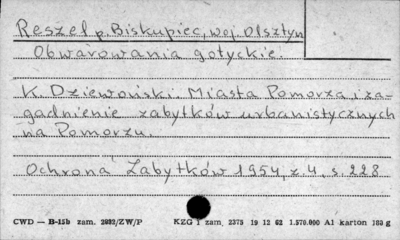 Reszel p. Biskupiec, woj. Olsztyn
Obwarowania gotyckie.
K. Dziewoński. Miasta Pomorza i za-
gadnienie zabytków urbanistycznych
na Pomorzu.
Ochrona Zabytków 1954, z. 4, s. 228
CWD — B-15b zam. 2992/ZW/P KZG 1 zam. 2375 19 12 62 1.570.000 A1 karton 162 g